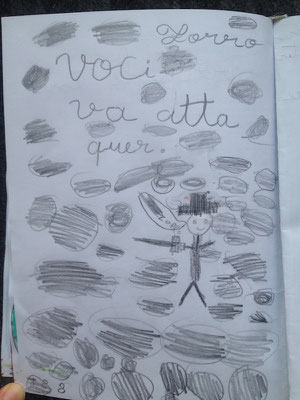 Zorro
voci
va atta
quer.